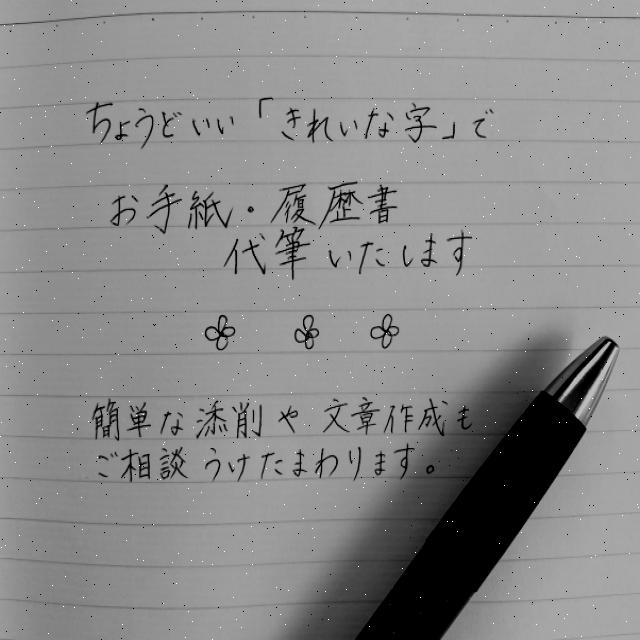 ちょうどいい「きれいな字」で
お手紙・履歴書
代筆いたします
簡単な添削や文章作成も
ご相談うけたまわります。